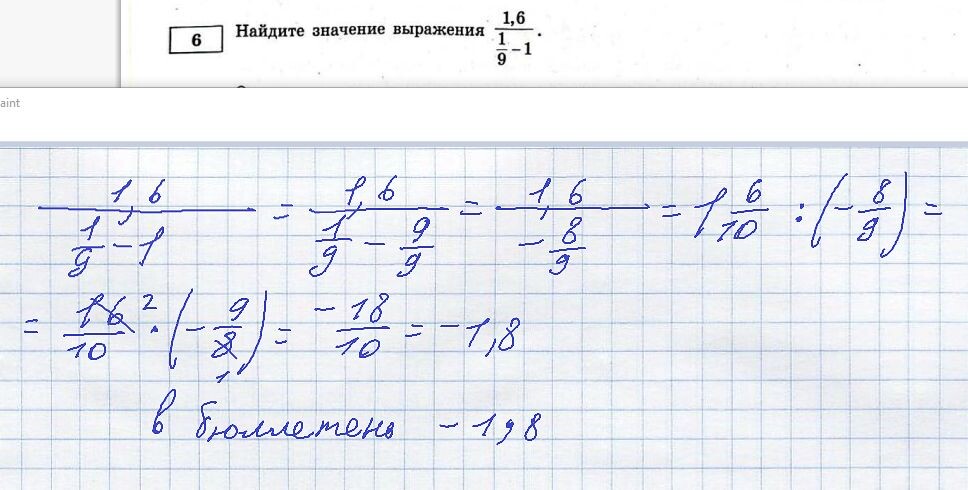 6 Найдите значение выражения 1,6 / (1/9 − 1).
aint
1,6 / (1/9 − 1) = 1,6 / (1/9 − 9/9) = 1,6 / (− 8/9) = 1 6/10 : (− 8/9) =
= 16/10 2 · (− 9/8 1) = −18/10 = −1,8
в бюллетень −1,8